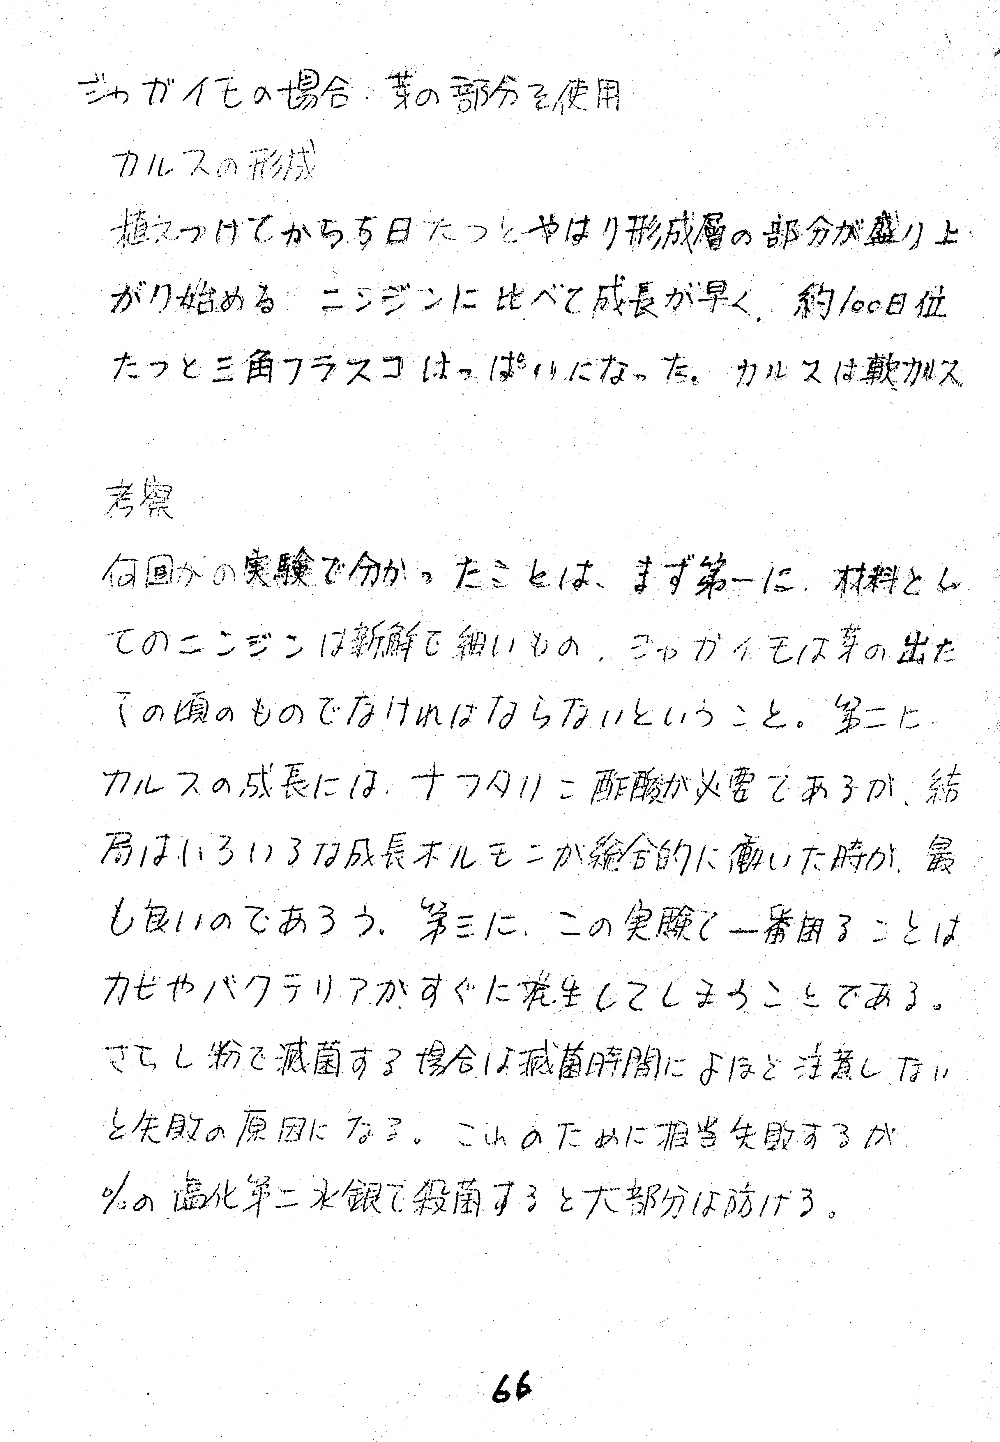 ジャガイモの場合 芽の部分を使用
カルスの形成
植えつけてから5日たつとやはり形成層の部分が盛り上
がり始める ニンジンに比べて成長が早く、約100日位
たつと三角フラスコはっぱいになった。カルスは軟カルス
考察
何回かの実験で分かったことは、まず第一に、材料とし
てのニンジンは新鮮で細いもの、ジャガイモは芽の出た
その頃のものでなければならないということ。第二に
カルスの成長には、ナフタリン酢酸が必要であるが、結
局はいろいろな成長ホルモンが総合的に働いた時が、最
も良いのであろう。第三に、この実験で一番困ることは
カビやバクテリアがすぐに発生してしまうことである。
さらし粉で滅菌する場合は滅菌時間によほど注意しない
と失敗の原因になる。これのために相当失敗するが
%の塩化第二水銀で殺菌すると大部分は防げる。
66